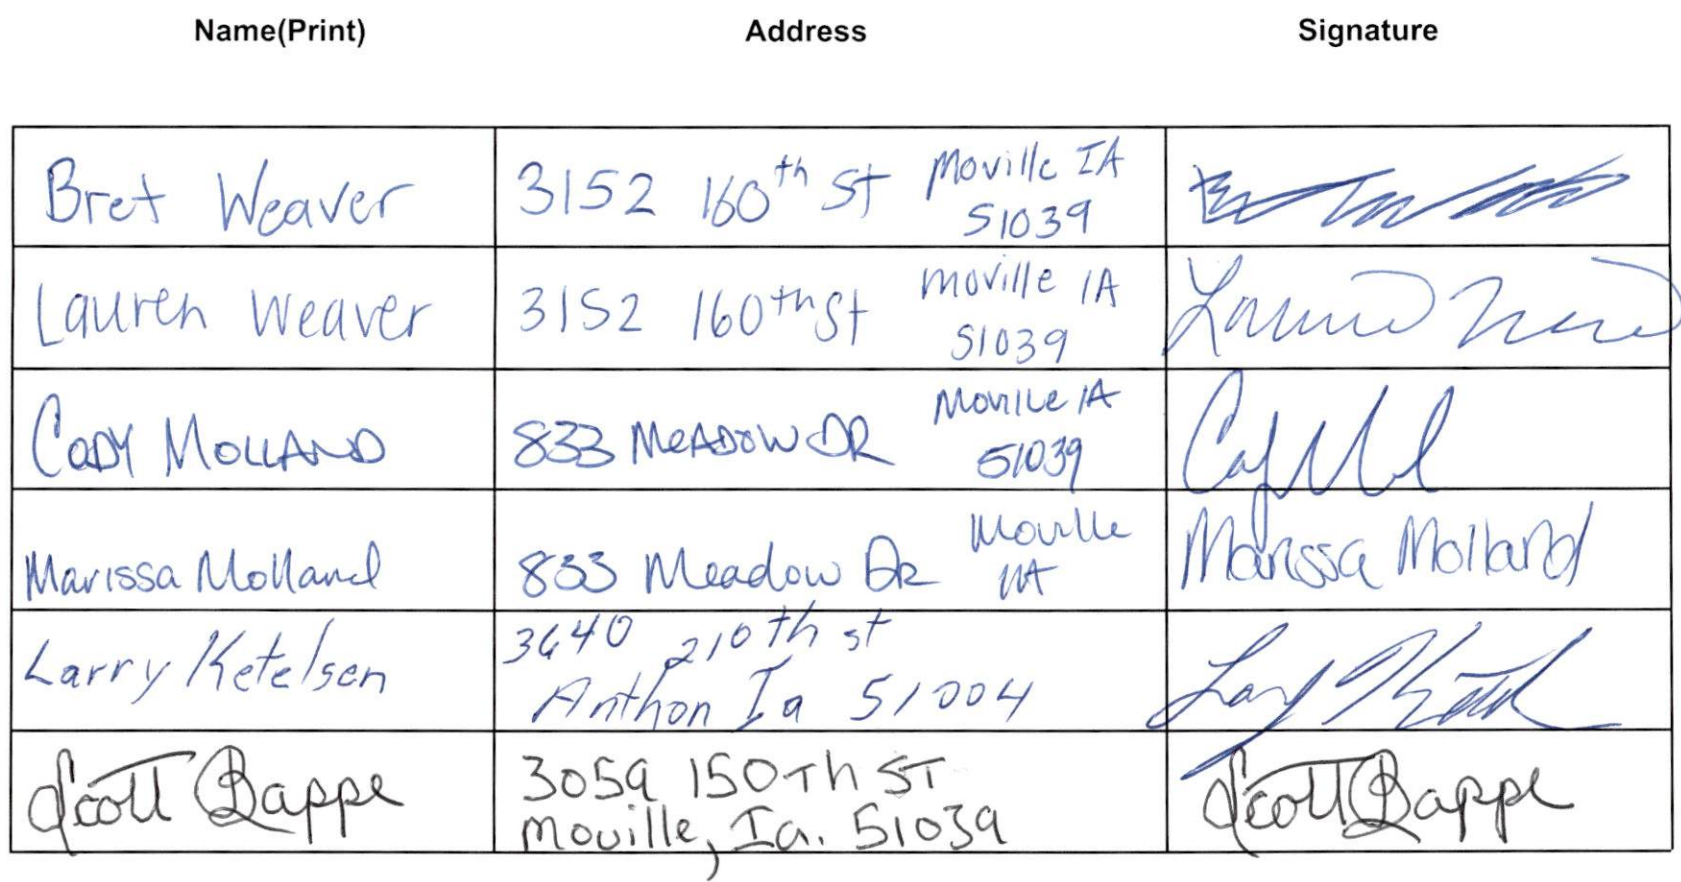 Name(Print) Address Signature
Bret Weaver 3152 160th St Moville IA
51039
Lauren Weaver 3152 160th St Moville IA
51039
CODY MOLLAND 833 MEADOW DR Moville IA
51039
Marissa Molland 833 Meadow DR Moville
IA
Marissa Molland
Larry Ketelsen 3640 210th st
Anthon Ia 51004
Scott Bappe 3059 150Th ST
Moville, Ia. 51039
Scott Bappe